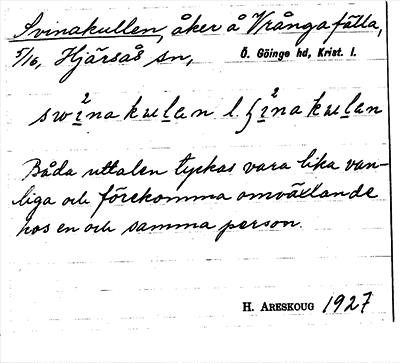 Svinakullen, åker å Vrångafälla,
5/16, Hjärsås sn, Ö. Göinge hd, Krist. l.
Båda uttalen tyckas vara lika van-
liga och förekomma omväxlande
hos en och samma person.
H. ARESKOUG 1927